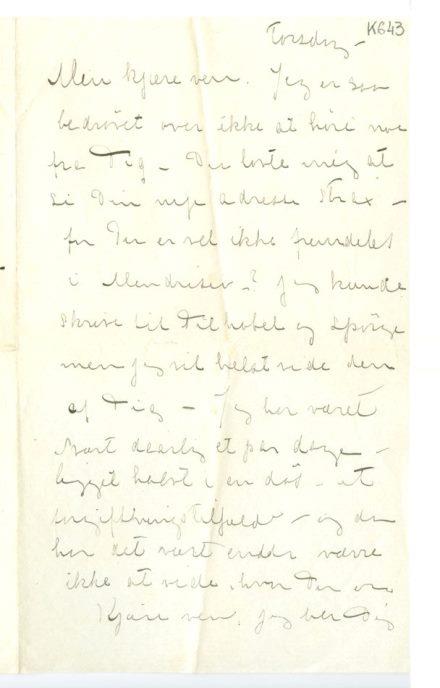 K643
Torsdag –
Min kjære ven. Jeg er saa
bedrøvet over ikke at høre noe
fra Dig – Du lovte mig at
si Din nye adresse strax –
for Du er vel ikke fremdeles
i Mendrisio –? Jeg kunde
skrive til Tilnobel og spørge
men jeg vil helst vide den
af Dig – Jeg har været
svært daarlig et par dage –
ligget halvt i en døs – et
forgiftningstilfælde – og da
har det vært endda værre
ikke at vide, hvor Du er
Kjære ven, jeg ber Dig